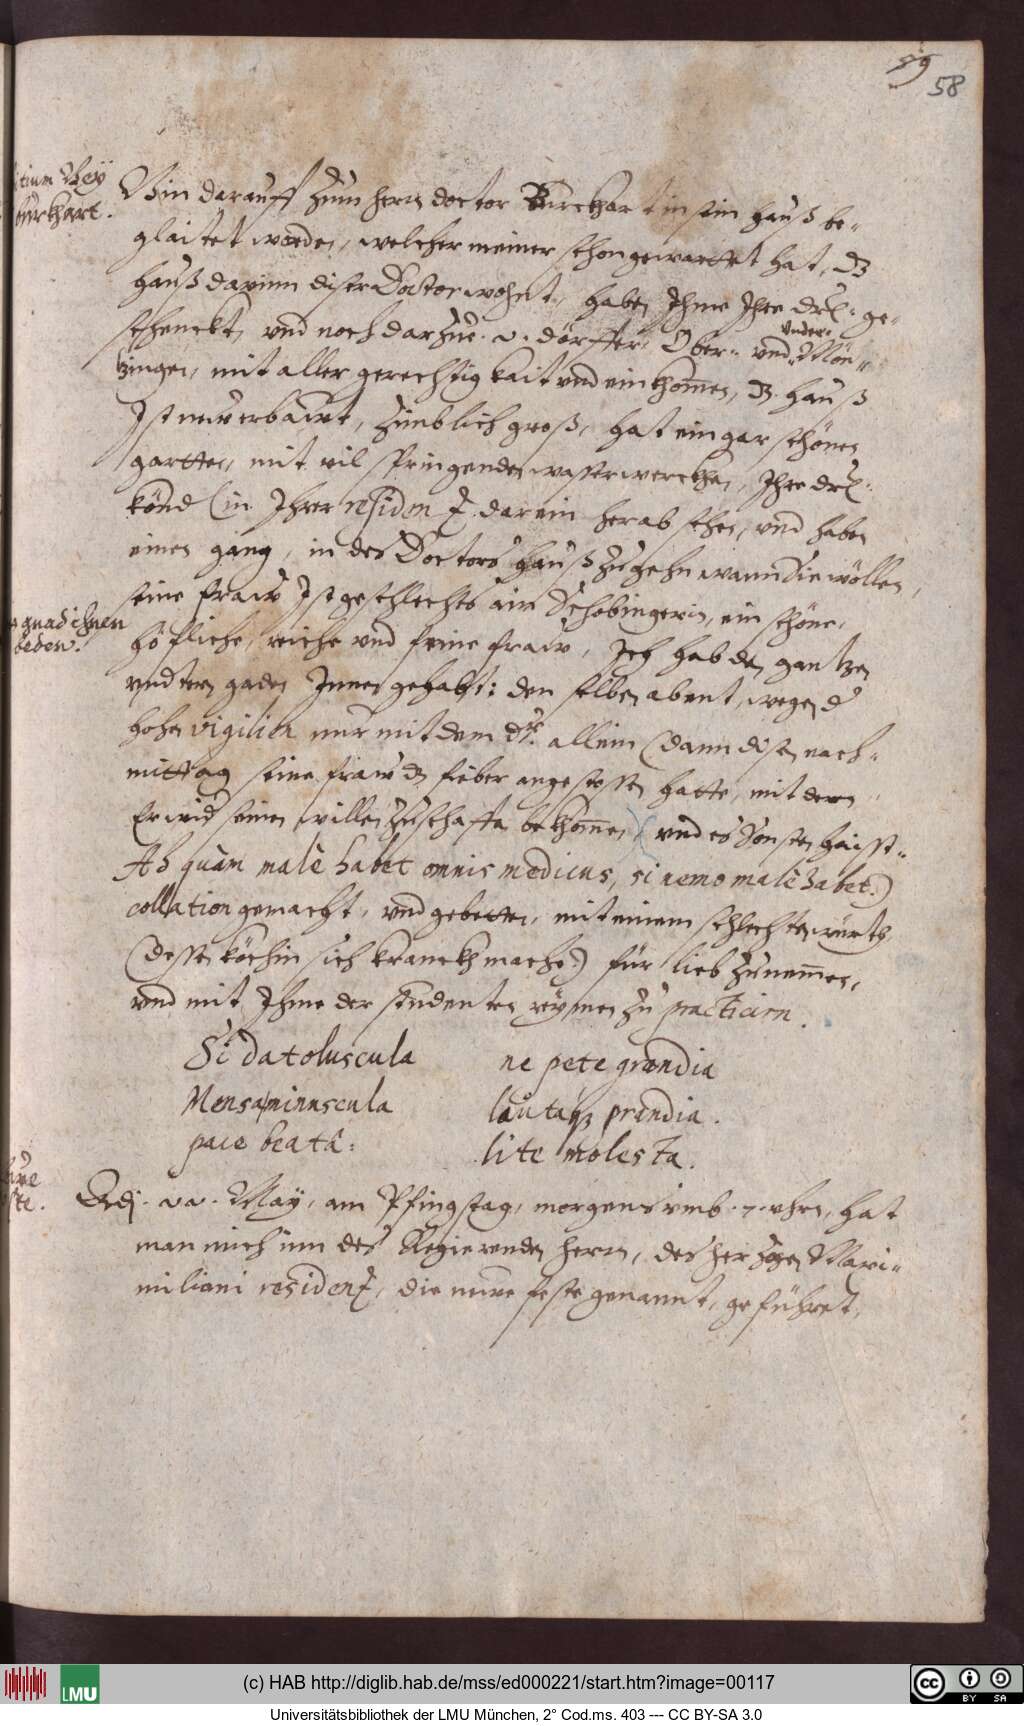 59
58
Bin darauff zum herrn doctor Burckhart in sein hauß be-
glaitet worden, welcher meiner schon gewarttet hat, dz
hauß darinn diser Doctor wohnt, haben Ihme Ihre drl: ge-
schenckt, und noch darzue .2. dörffer, Ober- und Under-
Mön-
zingen, mit aller gerechtigkait und einkhomen, dz hauß
Ist new erbawt, zimblich groß, hat ein gar schönen
gartten, mit vil springenden wasserwerckhen, Ihre drl:
könd in Ihrer residenz darein herab sehen, und haben
einen gang, in des Doctors hauß zugehn wann Sie wöllen,
seine fraw Ist geschlechts ein Schobingerin, ein schöne,
höfliche, reiche und feine fraw, Ich hab den gantzen
undtern gaden Innen gehabt: den selben abent, wegen der
hohen vigilien nur mit dem dr. allein (dann disen nach-
mittag seine fraw dz fieber angestossen hatte, mit dem
Er wider seinen willen zuschaffen bekhomen, und es Sonsten haisst
Ah quàm malè habet omnis medicus, si nemo malè habet.)
collation gemacht, und gebetten, mit einem schlechten würth
(dessen köchin sich kranckh mache) für lieb zunemen,
und mit Ihme der studenten reymen zu practiciern.
Si dat oluscula ne pete grandia
Mensa minuscula lautaq3 prandia.
pace beatâ: lite molesta.
Adj. 22. May, am Pfingstag, morgens umb .7. uhrn, hat
man mich inn des Regierenden herrn, des herzogen Maxi-
miliani residenz, die newe feste genannt, geführet,
(c) HAB http://diglib.hab.de/mss/ed000221/start.htm?image=00117
LMU
BY SA
Universitätsbibliothek der LMU München, 2° Cod.ms. 403 --- CC BY-SA 3.0